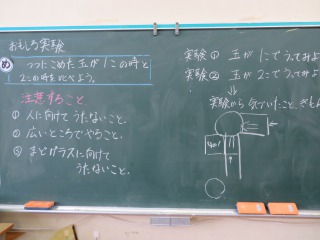 おもしろ実験
め つつにこめた玉が1この時と
2この時を比べよう。
注意すること
① 人に向けてうたないこと。
② 広いところでやること。
③ まどガラスに向けて
うたないこと。
実験① 玉が1こでうってみよ
実験② 玉が2こでうってみよ
実験から気づいたこと、ぎもん